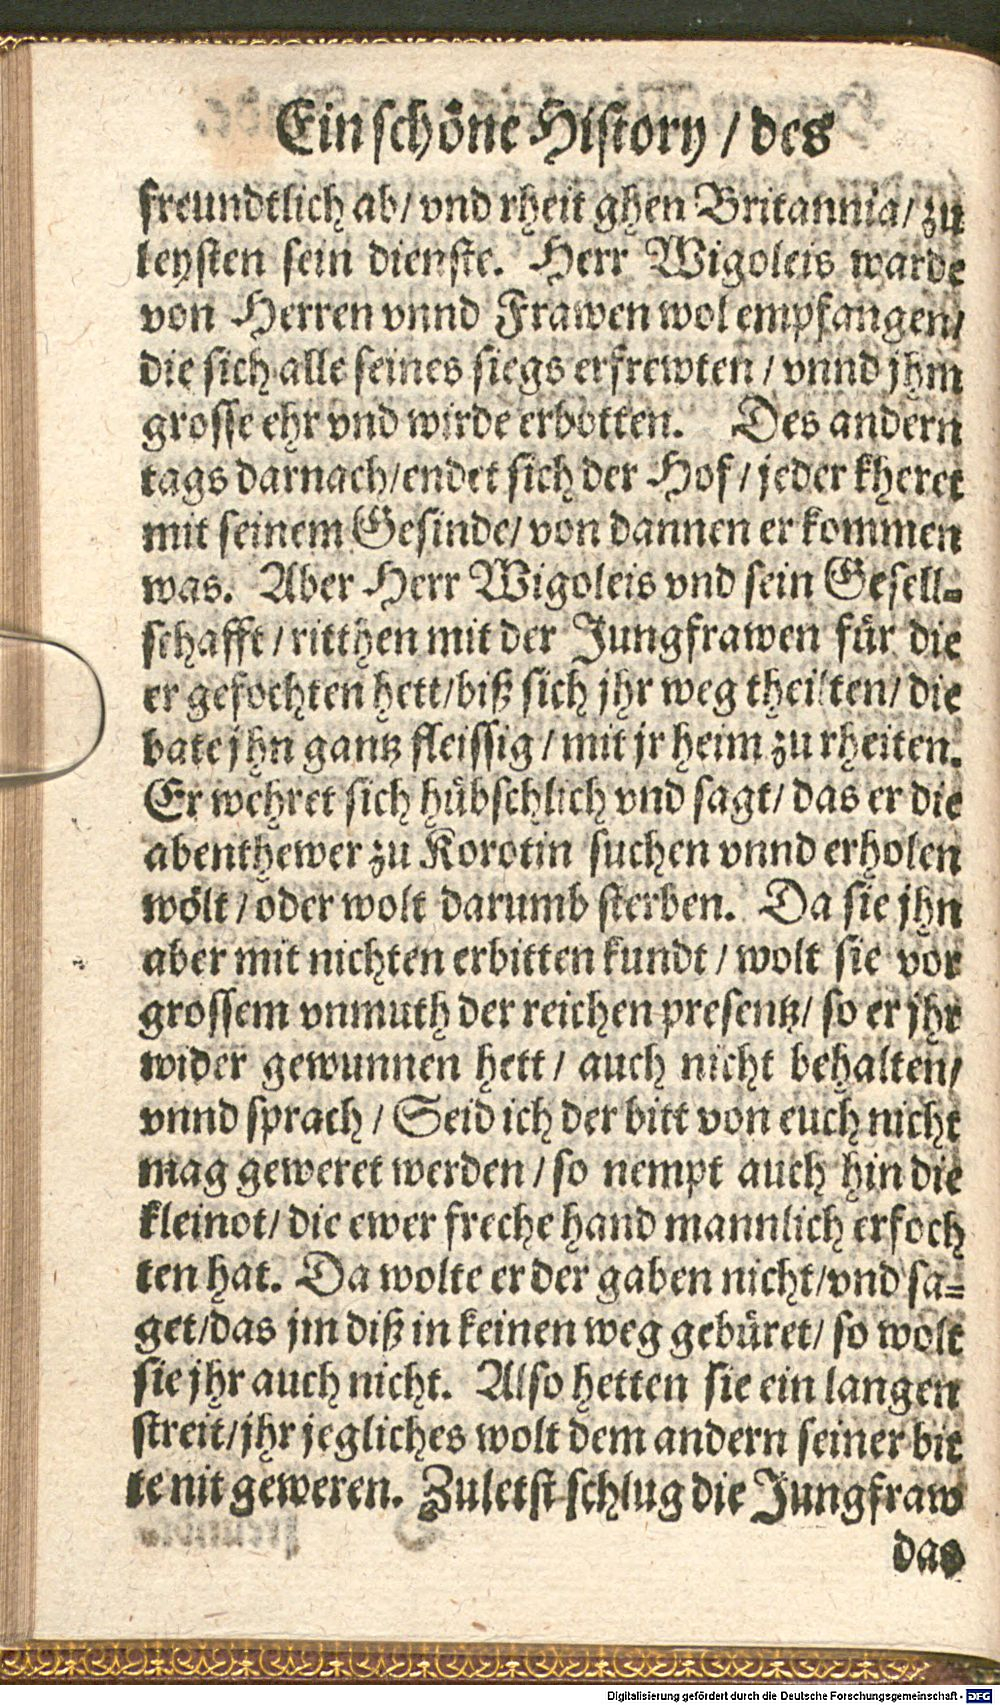 Ein schöne History / des
freundtlich ab / vnd rheit ghen Britannia / zu
leysten sein dienste. Herr Wigoleis warde
von Herren vnnd Frawen wol empfangen /
die sich alle seines siegs erfrewten / vnnd jhm
grosse ehr vnd wirde erbotten. Des andern
tags darnach / endet sich der Hof / jeder kheret
mit seinem Gesinde / von dannen er kommen
was. Aber Herr Wigoleis vnd sein Gesell-
schafft / ritthen mit der Jungfrawen für die
er gefochten hett / biß sich jhr weg theilten / die
bate jhn gantz fleissig / mit jr heim zu rheiten.
Er wehret sich hübschlich vnd sagt / das er die
abenthewer zu Korotin suchen vnnd erholen
wölt / oder wolt darumb sterben. Da sie jhn
aber mit nichten erbitten kundt / wolt sie vor
grossem vnmuth der reichen presentz / so er jhr
wider gewunnen hett / auch nicht behalten /
vnnd sprach / Seid ich der bitt von euch nicht
mag geweret werden / so nempt auch hin die
kleinot / die ewer freche hand mannlich erfoch
ten hat. Da wolte er der gaben nicht / vnd sa-
get / das jm diß in keinen weg gebüret / so wolt
sie jhr auch nicht. Also hetten sie ein langen
streit / jhr jegliches wolt dem andern seiner bit
te nit geweren. Zuletst schlug die Jungfraw
das
Digitalisierung gefördert durch die Deutsche Forschungsgemeinschaft - DFG